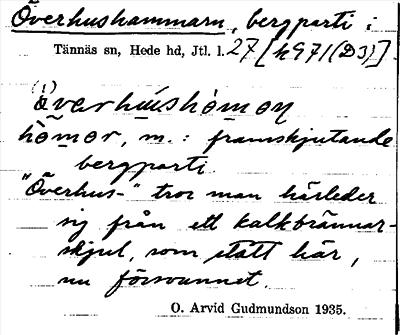 Överhushammarn, bergparti i
Tännäs sn, Hede hd, Jtl. l. 27 [h971(D3)].
överhu̱shò̱mo̱n
hò̱mo̱r, m.: framskjutande
bergparti.
"Överhus-" tros man härleder
sig från ett kalkbrännar-
skjul, som stått här,
nu försvunnet.
O. Arvid Gudmundson 1935.